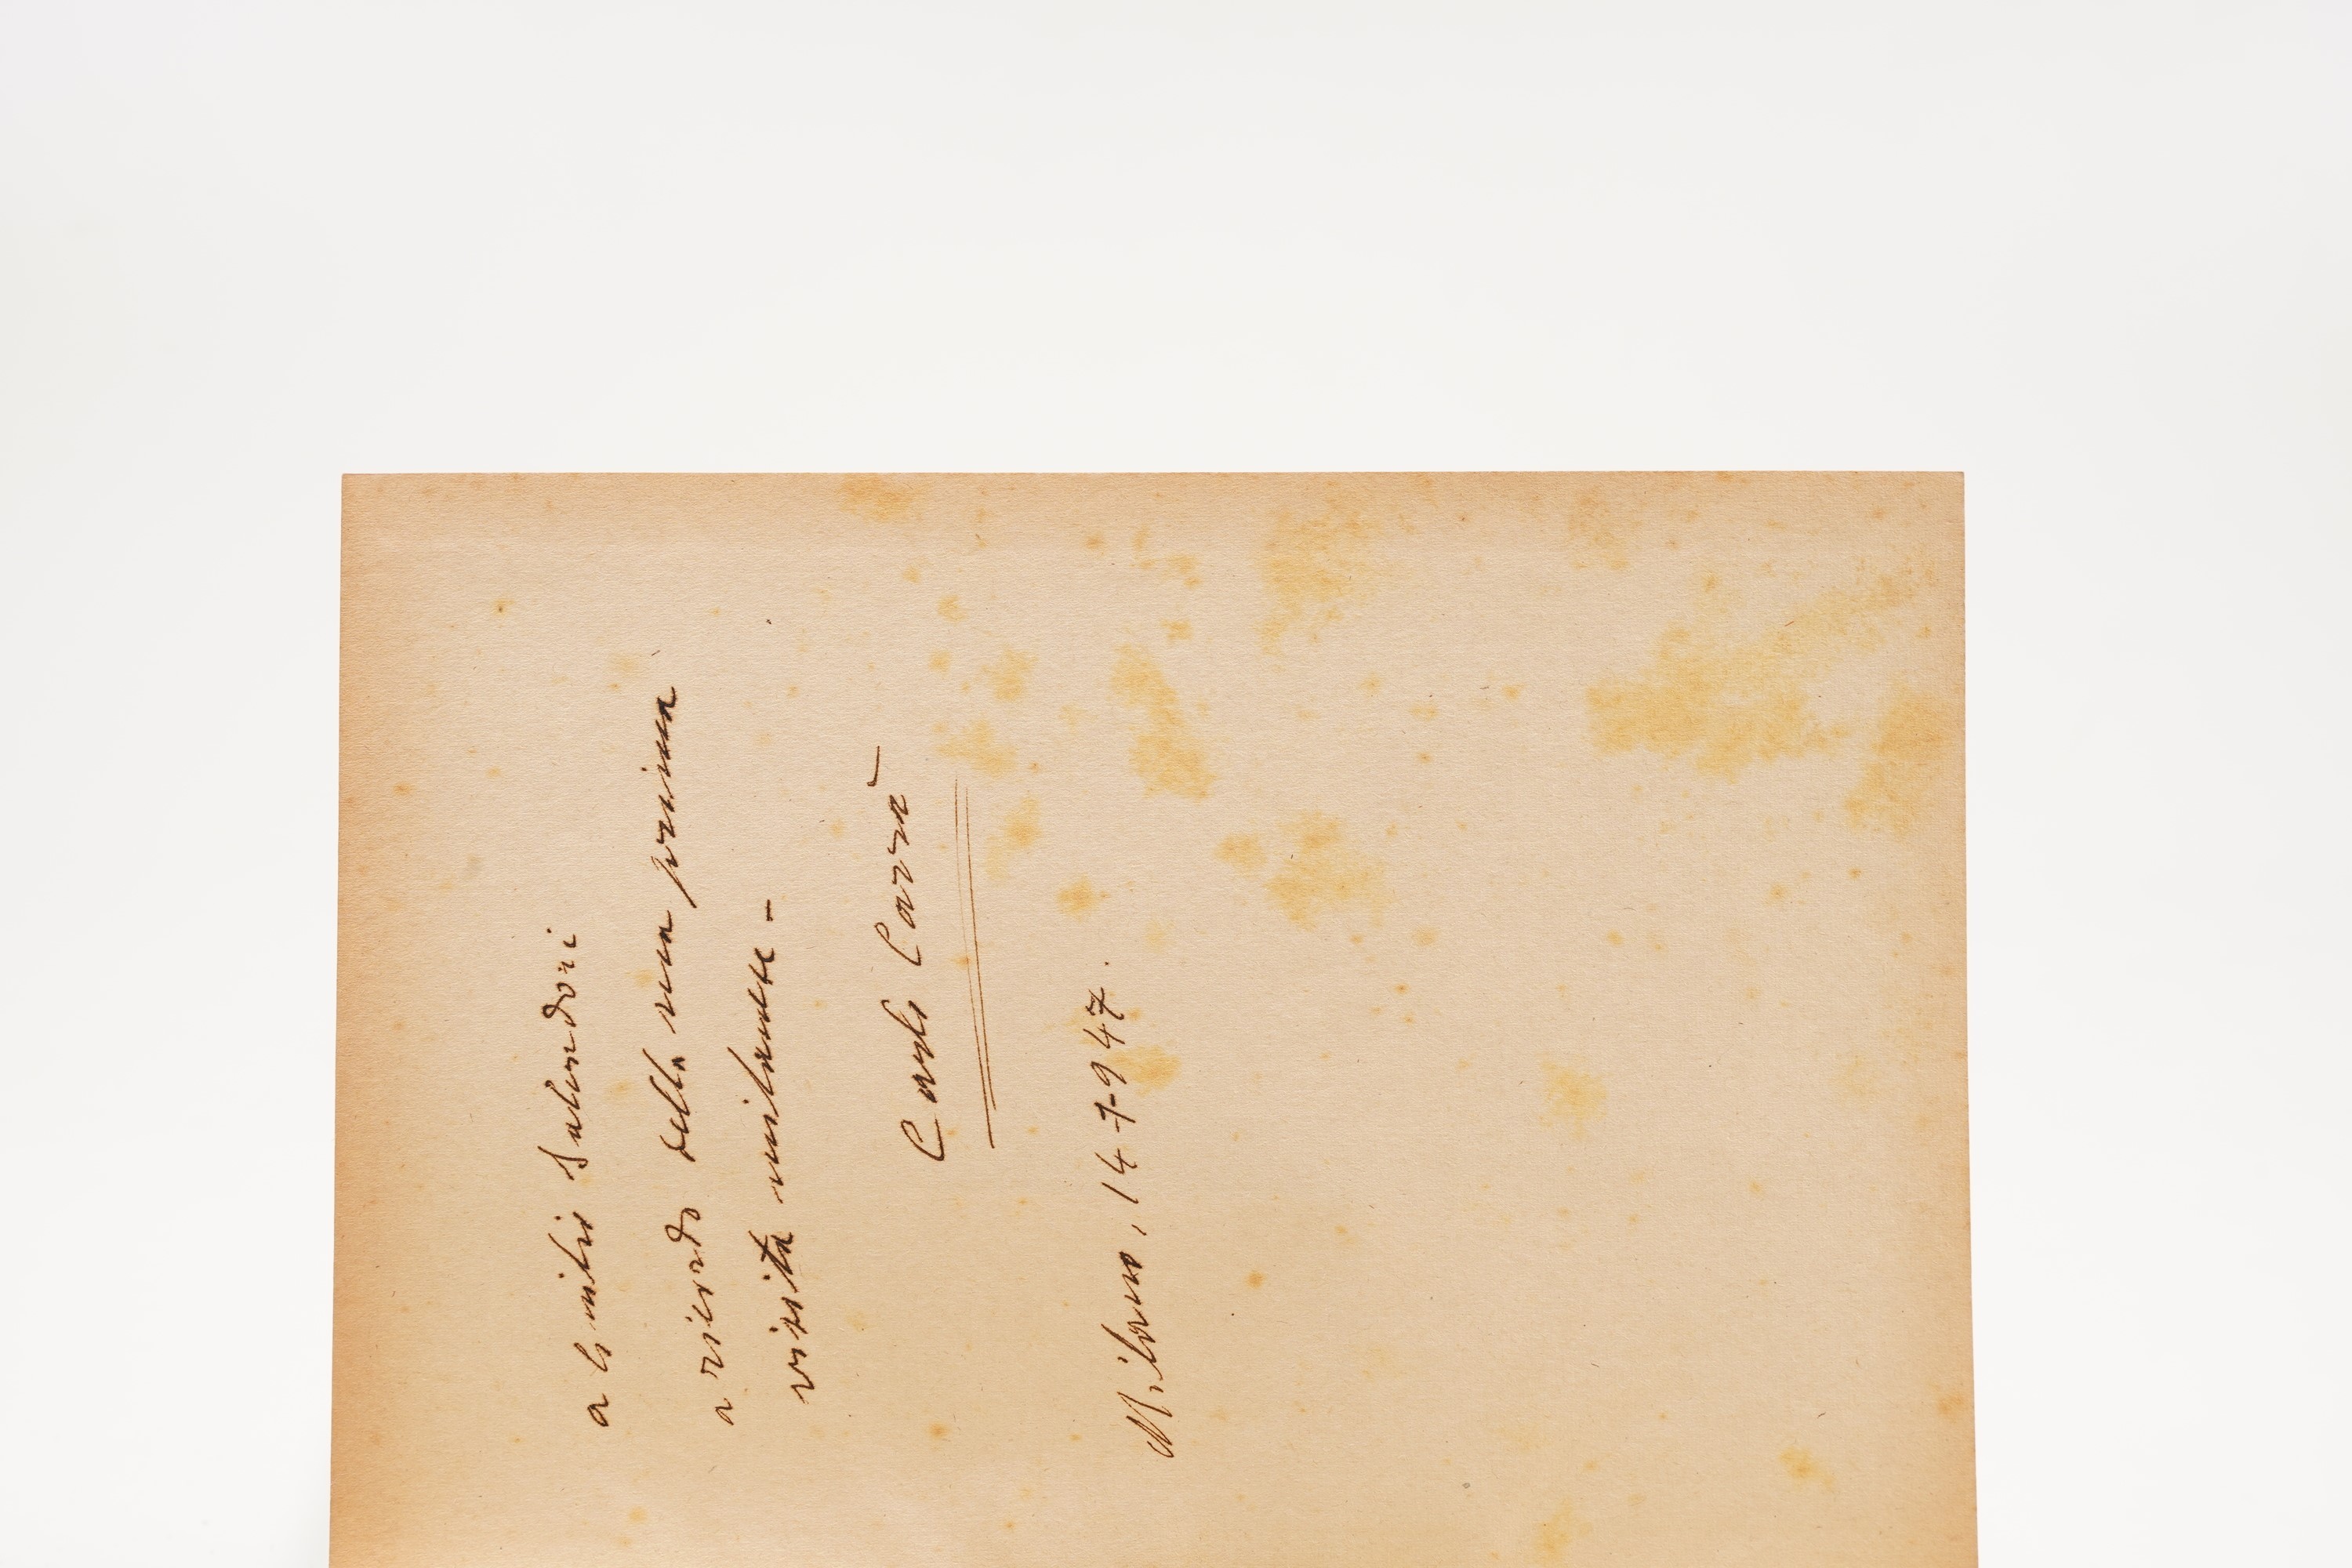 a Livio Salvadori
a ricordo della sua prima
visita milanese -
Carlo Carrà
Milano, 14-7-947.